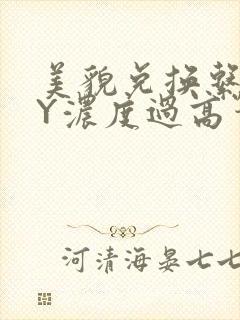 美貌兌換繫
Y濃度過高
河清海晏七七